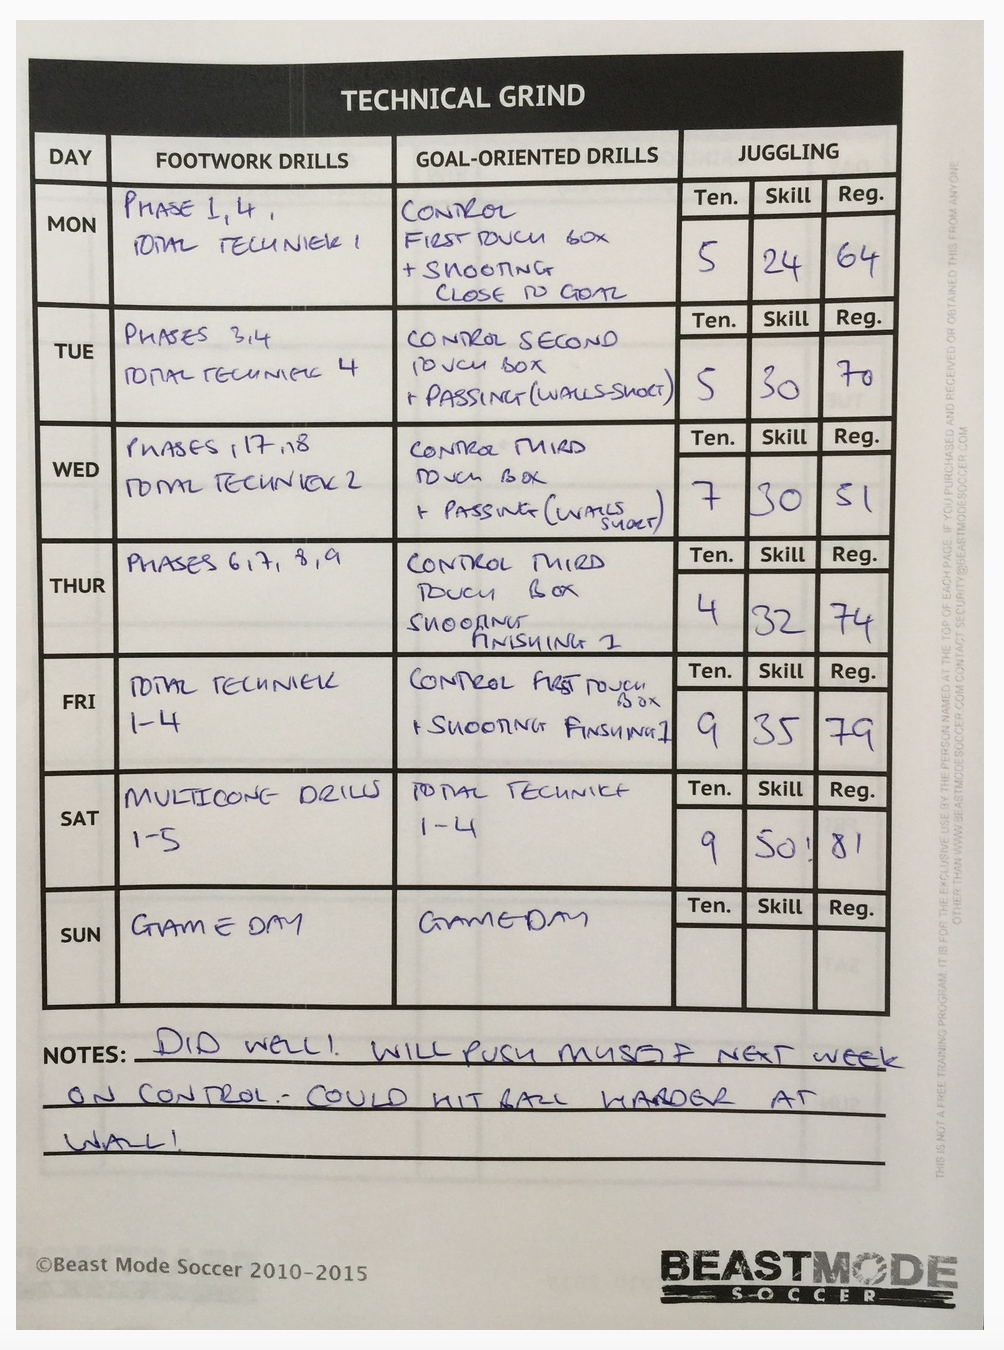 TECHNICAL GRIND
DAY
FOOTWORK DRILLS
GOAL-ORIENTED DRILLS
JUGGLING
MON
PHASE 1, 4,
TOTAL TECHNIEK 1
CONTROL
FIRST TOUCH BOX
+ SHOOTING
CLOSE TO GOAL
Ten. Skill Reg.
5 24 64
TUE
PHASES 3,4
TOTAL TECHNIEK 4
CONTROL SECOND
TOUCH BOX
+ PASSING (WALLS-SHORT)
Ten. Skill Reg.
5 30 70
WED
PHASES ,17,18
TOTAL TECHNIEK 2
CONTROL THIRD
TOUCH BOX
+ PASSING (WALLS
SHORT)
Ten. Skill Reg.
7 30 51
THUR
PHASES 6,7, 8,9
CONTROL THIRD
TOUCH BOX
SHOOTING
FINISHING 1
Ten. Skill Reg.
4 32 74
FRI
TOTAL TECHNIEK
1-4
CONTROL FIRST TOUCH
BOX
+ SHOOTING FINSHING 1
Ten. Skill Reg.
9 35 79
SAT
MULTICONE DRILLS
1-5
TOTAL TECHNIEK
1-4
Ten. Skill Reg.
9 50! 81
SUN
GAME DAY
GAMEDAY
Ten. Skill Reg.
NOTES: DID WELL! WILL PUSH MYSELF NEXT WEEK
ON CONTROL.- COULD HIT BALL HARDER AT
WALL!
©Beast Mode Soccer 2010-2015
BEASTMODE
SOCCER
THIS IS NOT A FREE TRAINING PROGRAM. IT IS FOR THE EXCLUSIVE USE BY THE PERSON NAMED AT THE TOP OF EACH PAGE. IF YOU PURCHASED AND RECEIVED OR OBTAINED THIS FROM ANYONE
OTHER THAN WWW.BEASTMODESOCCER.COM CONTACT SECURITY@BEASTMODESOCCER.COM